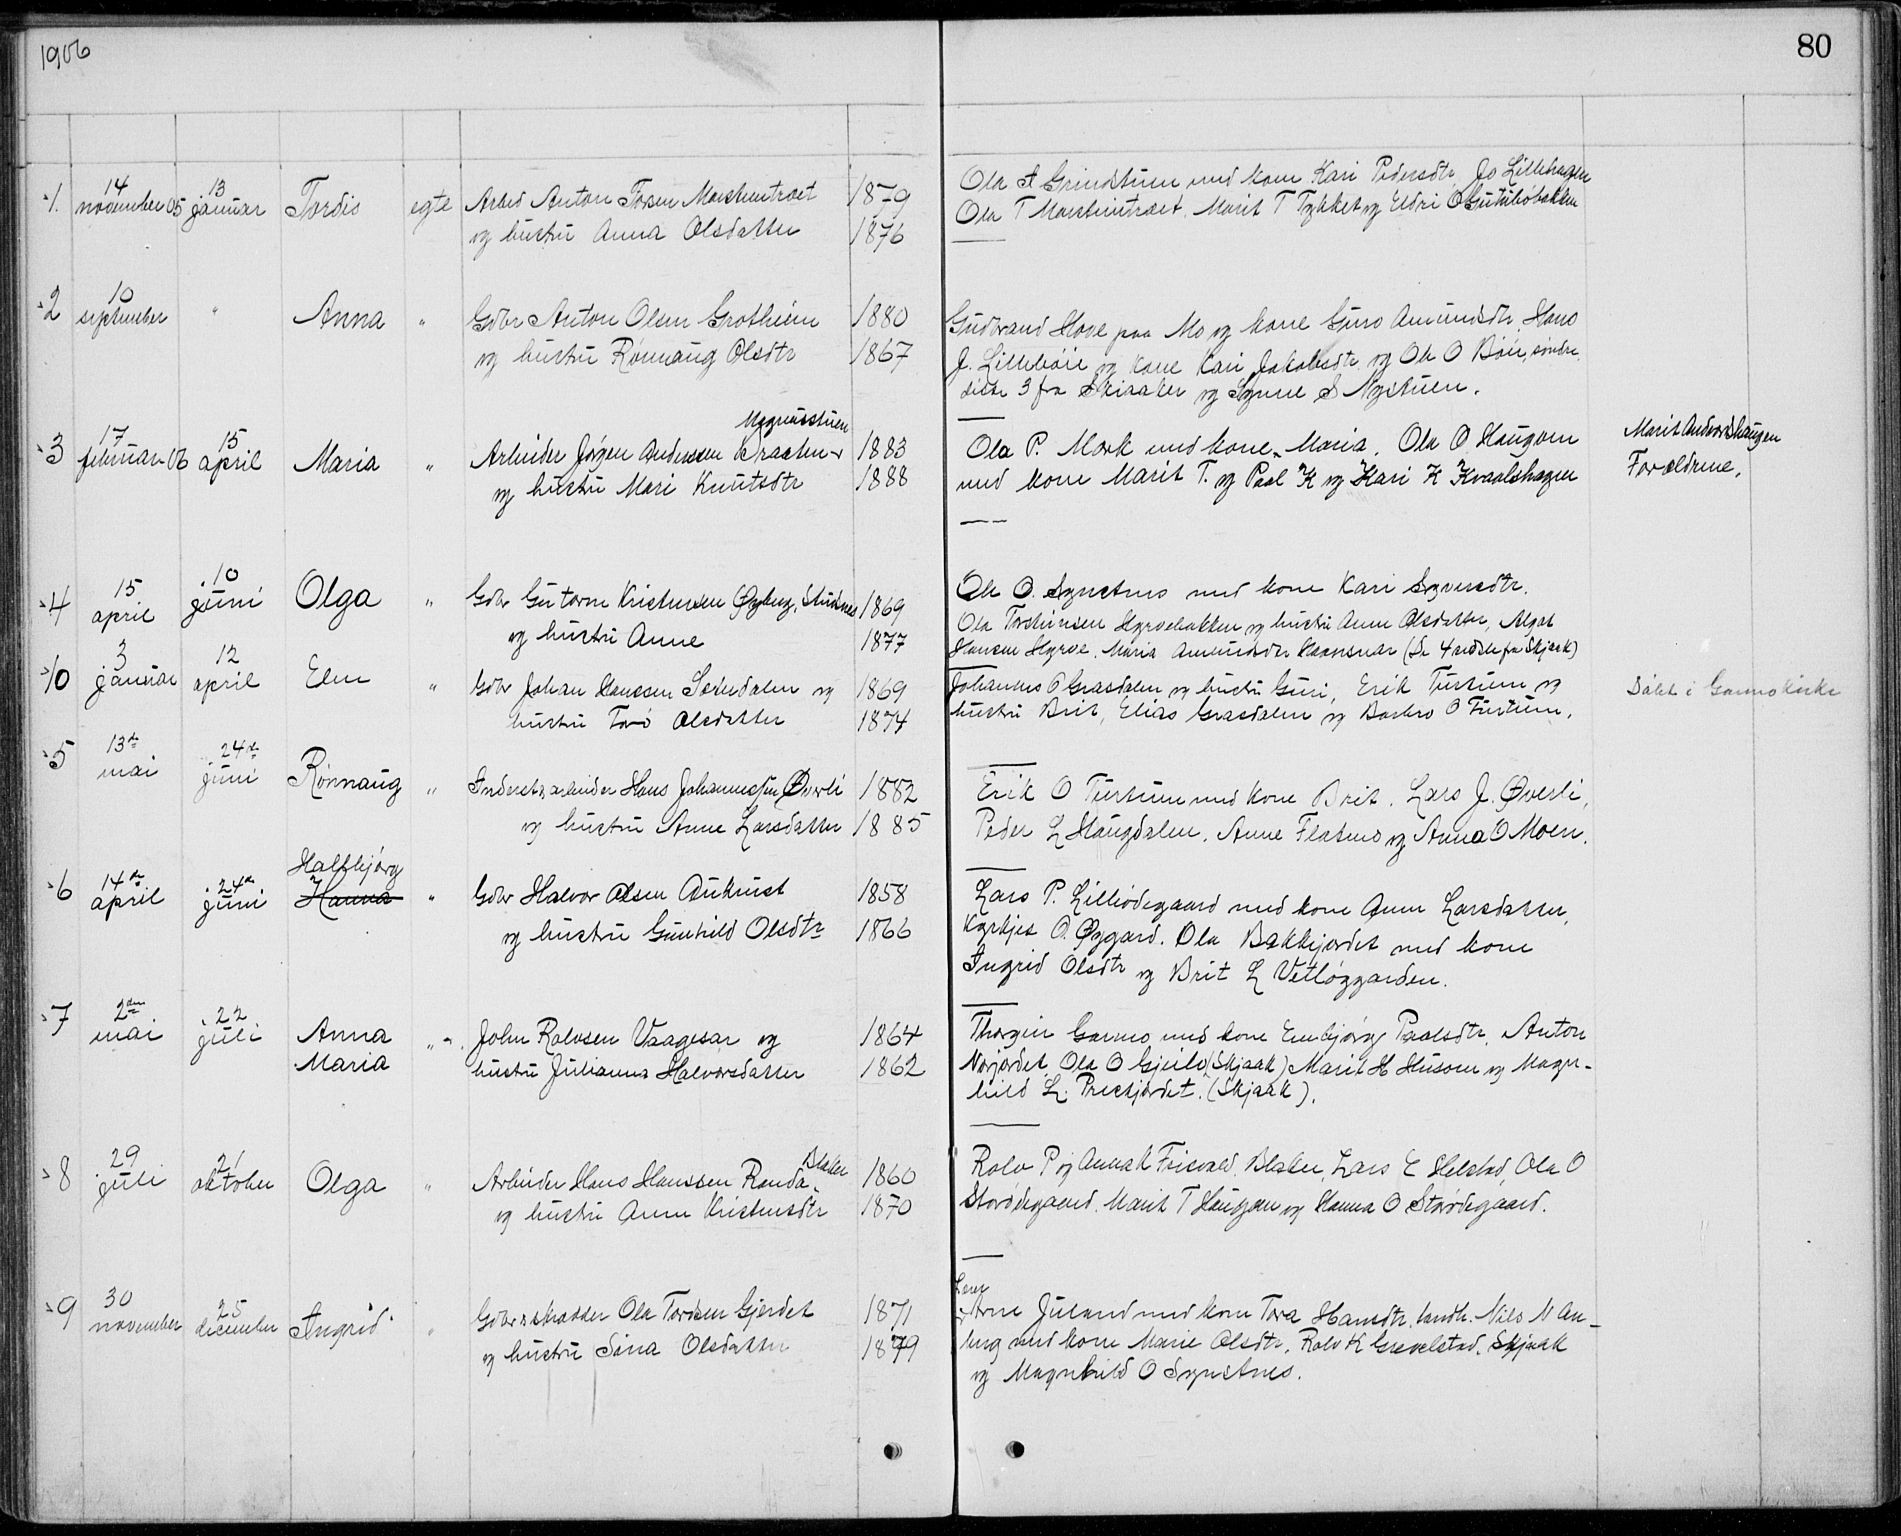 1906
80
1. 14 november 05 13 januar Tordis egte Arbed Anton Torsen Marsteintræet 1879
og hustru Anna Olsdatter 1876
Ola A Grindstuen med kone Kari Pedersdtr, Jo Lillehagen
Ola T Marsteintræet, Marit T Tykket og Eldri O
2 10 september " Anna " Gdbr Anton Olsen Grotheim 1880
og hustru Rønnaug Olsdtr 1867
Gudbrand Hove paa Mo og kone Guro Amundsdtr, Hans
J. Lillebøie og kone Kari Jakobsdtr og Ole O Bøie, søndre
siste 3 fra Skiaaker og Synne S Nystuen.
3 17 februar 06 15 april Maria " Arbeider Jørgen Anderssen 1883
og hustru Mari Knutsdtr 1888
Ola P. Mork med kone Maria, Ola O Haugom
med kone Marit T. og Paal K og Kari K Kvaalshagen
Marit Andvordshaugen
Forældrene.
4 15 april 10 juni Olga " Gdbr Gutorm Kristensen Øyberg, 1869
og hustru Anne 1877
Ole O. Synstnes med kone Kari Syversdtr.
Ola Torsteinsen Hyrvebakken og hustru Anne Olsdatter,
Hansen Hyrve, Maria Amundsdtr (De 4 fra Skjaak)
10 3 januar 12 april Elen " Gdbr Johan Hanssen Soleindalen og 1869
hustru Torø Olsdatter 1874
Johannes O Grasdalen og hustru Guri, Erik Turtum og
hustru Brit, Elias Grasdalen og Barbro O Turtum.
Døbt i Garmo kirke
5 13de mai 24de juni Rønnaug " Inderstarbeider Hans Johannessen Øverli 1882
og hustru Anne Larsdatter 1885
Erik O Turtum med kone Brit. Lars J. Øverli,
Peder L Haugdalen, Anne Flatmo og Anna O Moen.
6 14de april 24de juni Halfbjørg
Hanna " Gdbr Halvor Olsen Aukrust 1858
og hustru Gunhild Olsdtr 1866
Lars P. Lilleødegaard med kone Anne Larsdatter,
O. Øygard. Ola Bakkjordet med kone
Ingrid Olsdtr og Brit L Vetløygarden.
7 2den mai 22 juli Anna " John Rolvsen Vaagesar og 1864
Maria hustru Julianna Halvorsdatter 1862
Thorgeir Garmo med kone Embjørg Paalsdtr, Anton
Norjordet, Ola O Gjeilo (Skjaak) Marit H Husom og Magn-
hild L. Prestjordet (Skjaak).
8 29 juli 21 oktober Olga " Arbeider Hans Hanssen Randa, Blaker 1860
og hustru Anne Kristensdtr 1870
Rolv P og Anna K Frisvold, Blaker, Lars E Helstad, Ola O
Storødegaard, Marit T Haugom og Hanna O Storødegaard.
9 30 november 25 december Ingrid " Gdbr skrædder Ola Tordsen Gjerdet 1871
og hustru Sina Olsdatter 1879
Lærer
Arne Juland med kone Tora Hansdtr, landh. Nils N An-
berg med kone Marie Olsdtr, Rolv K Grevelstad, Skjaak
og Magnhild O Synstnes.